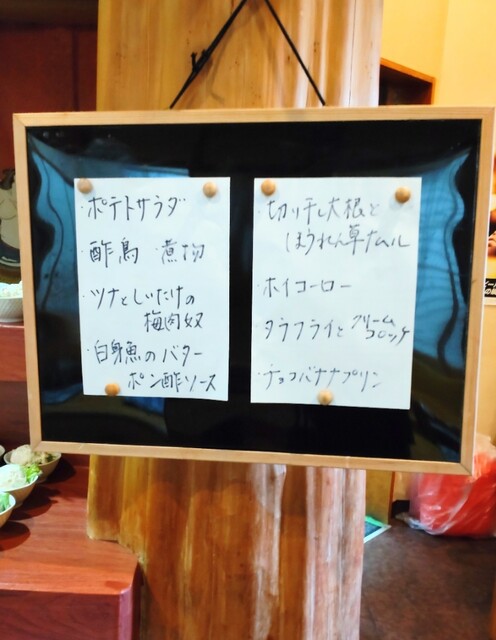 ・ポテトサラダ
・酢鳥 ・煮物
・ツナとしいたけの
梅肉奴
・白身魚のバター
ポン酢ソース
・切り干し大根と
ほうれん草ナムル
・ホイコーロー
・タラフライとクリーム
コロッケ
・チョコバナナプリン